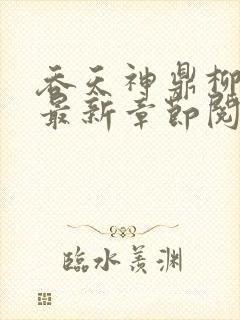 吞天神鼎柳
最新章節閱
臨水羨渊